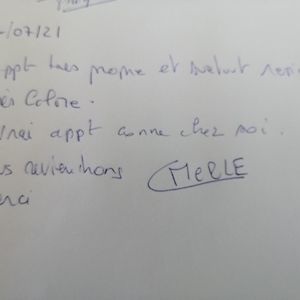 /07/21
appt très propre et surtout
très calme.
vrai appt comme chez soi.
reviendrons MERLE
merci